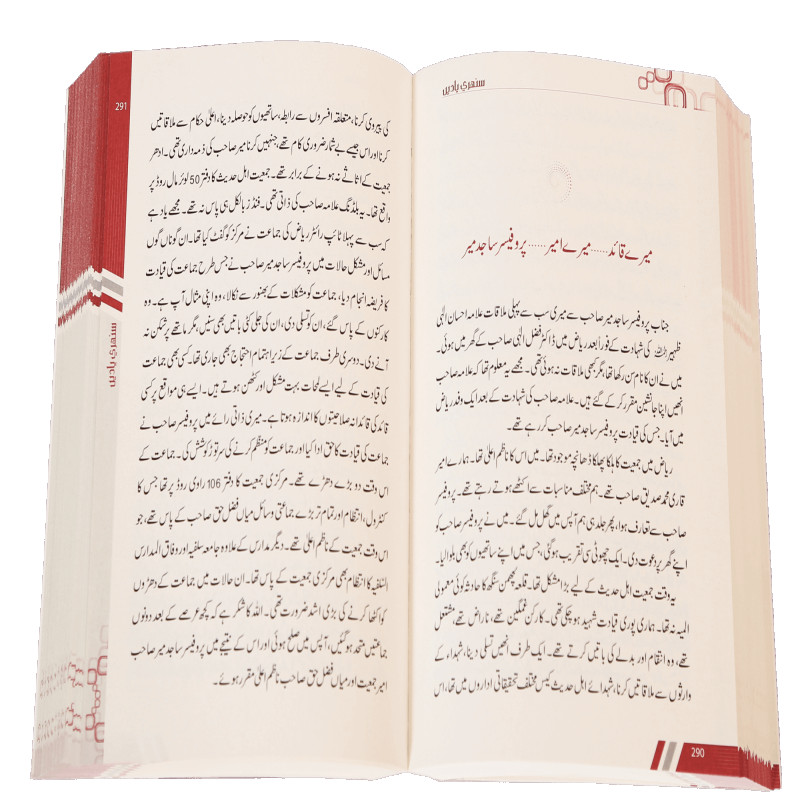 سنہری یادیں
میرے قائد ..... میرے امیر ..... پروفیسر ساجد میر
جناب پروفیسر ساجد میر صاحب سے میری سب سے پہلی ملاقات علامہ احسان الٰہی
ظہیر رحمہ اللہ کی شہادت کے فوراً بعد ریاض میں ڈاکٹر فضل الٰہی صاحب کے گھر میں ہوئی۔
میں نے ان کا نام سن رکھا تھا، مگر کبھی ملاقات نہ ہوئی تھی۔ مجھے یہ معلوم تھا کہ علامہ صاحب
انھیں اپنا جانشین مقرر کر کے گئے ہیں۔ علامہ صاحب کی شہادت کے بعد ایک وفد ریاض
میں آیا۔ جس کی قیادت پروفیسر ساجد میر صاحب کر رہے تھے۔
ریاض میں جمعیت کا ہلکا پھلکا ڈھانچہ موجود تھا۔ میں اس کا ناظم اعلیٰ تھا۔ ہمارے امیر
قاری محمد صدیق صاحب تھے۔ ہم مختلف مناسبات سے اکٹھے ہوتے رہتے تھے۔ پروفیسر
صاحب سے تعارف ہوا، پھر جلد ہی ہم آپس میں گھل مل گئے۔ میں نے پروفیسر صاحب کو
اپنے گھر پر دعوت دی۔ ایک چھوٹی سی تقریب ہو گئی، جس میں اپنے ساتھیوں کو بھی بلوا لیا۔
یہ وقت جمعیت اہل حدیث کے لیے بڑا مشکل تھا۔ قلعہ لچھمن سنگھ کا حادثہ کوئی معمولی
المیہ نہ تھا۔ ہماری پوری قیادت شہید ہو چکی تھی۔ کارکن غمگین تھے، ناراض تھے، مشتعل
تھے، وہ انتقام اور بدلے کی باتیں کرتے تھے۔ ایک طرف انھیں تسلی دینا، شہداء کے
وارثوں سے ملاقاتیں کرنا، شہدائے اہل حدیث کیس مختلف تحقیقاتی اداروں میں تھا، اس
290
291
سنہری یادیں
کی پیروی کرنا، متعلقہ افسروں سے رابطہ، ساتھیوں کو حوصلہ دینا، اعلیٰ حکام سے ملاقاتیں
کرنا اور اس جیسے بے شمار ضروری کام تھے، جنہیں کرنا میر صاحب کی ذمہ داری تھی۔ ادھر
جمعیت کے اثاثے نہ ہونے کے برابر تھے۔ جمعیت اہل حدیث کا دفتر 50 لوئر مال روڈ پر
واقع تھا۔ یہ بلڈنگ علامہ صاحب کی ذاتی تھی۔ فنڈز بالکل ہی پاس نہ تھے۔ مجھے یاد ہے
کہ سب سے پہلا ٹائپ رائٹر ریاض کی جماعت نے مرکز کو گفٹ کیا تھا۔ ان گوناں گوں
مسائل اور مشکل حالات میں پروفیسر ساجد میر صاحب نے جس طرح جماعت کی قیادت
کا فریضہ انجام دیا، جماعت کو مشکلات کے بھنور سے نکالا، وہ اپنی مثال آپ ہے۔ وہ
کارکنوں کے پاس گئے، ان کو تسلی دی، ان کی جلی کٹی باتیں بھی سنیں، مگر ماتھے پر شکن نہ
آنے دی۔ دوسری طرف جماعت کے زیر اہتمام احتجاج بھی جاری تھا۔ کسی بھی جماعت
کی قیادت کے لیے ایسے لمحات بہت مشکل اور کٹھن ہوتے ہیں۔ ایسے ہی مواقع پر کسی
قائد کی قائدانہ صلاحیتوں کا اندازہ ہوتا ہے۔ میری ذاتی رائے میں پروفیسر صاحب نے
جماعت کی قیادت کا حق ادا کیا اور جماعت کو منظم کرنے کی سر توڑ کوشش کی۔ جماعت کے
اس وقت دو بڑے دھڑے تھے۔ مرکزی جمعیت کا دفتر 106 راوی روڈ پر تھا جس کا
کنٹرول، انتظام اور تمام تر بڑے جماعتی وسائل میاں فضل حق صاحب کے پاس تھے، جو
اس وقت جمعیت کے ناظم اعلیٰ تھے۔ دیگر مدارس کے علاوہ جامعہ سلفیہ اور وفاق المدارس
السلفیہ کا انتظام بھی مرکزی جمعیت کے پاس تھا۔ ان حالات میں جماعت کے دھڑوں
کو اکٹھا کرنے کی بڑی اشد ضرورت تھی۔ اللہ کا شکر ہے کہ کچھ عرصے کے بعد دونوں
جماعتیں متحد ہو گئیں، آپس میں صلح ہوئی اور اس کے نتیجے میں پروفیسر ساجد میر صاحب
امیر جمعیت اور میاں فضل حق صاحب ناظم اعلیٰ مقرر ہوئے۔